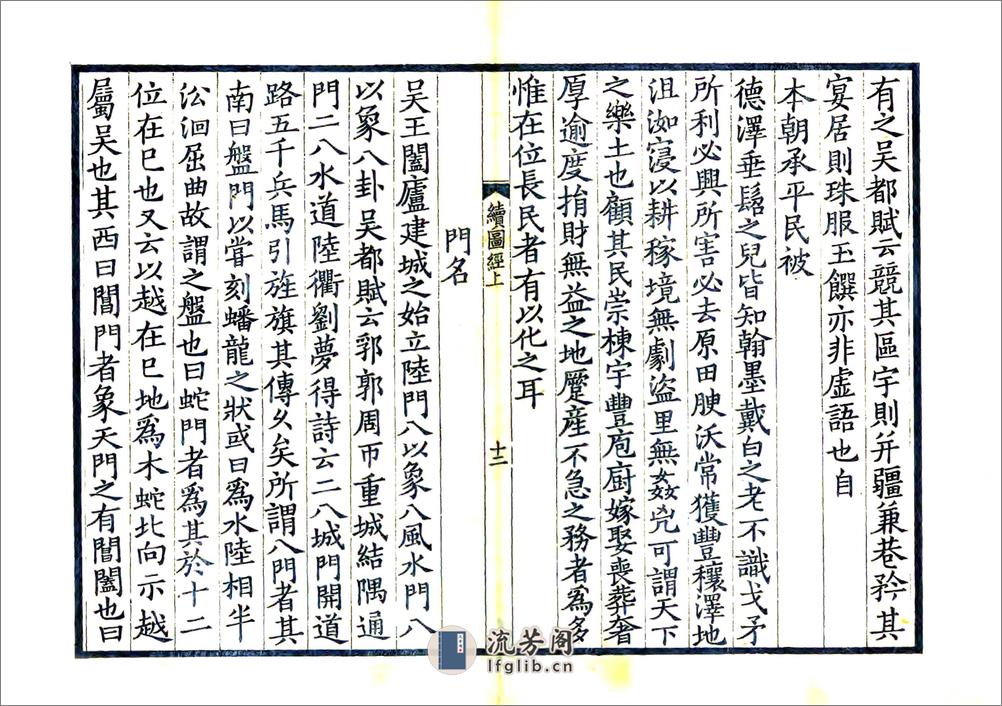 有之吳都賦云競其區宇則并疆兼巷矜其
宴居則珠服玉饌亦非虛語也自
本朝承平民被
德澤垂髫之兒皆知翰墨戴白之老不識戈矛
所利必興所害必去原田腴沃常獲豐穰澤地
沮洳寖以耕稼境無劇盜里無姦兇可謂天下
之樂土也顧其民崇棟宇豐庖廚嫁娶喪葬奢
厚逾度捐財無益之地蹷産不急之務者為多
惟在位長民者有以化之耳
門名
續圖經上
十二
吳王闔廬建城之始立陸門八以象八風水門八
以象八卦吳都賦云郭郭周帀重城結隅通
門二八水道陸衢劉夢得詩云二八城門開道
路五千兵馬引旌旗其傳久矣所謂八門者其
南曰盤門以嘗刻蟠龍之狀或曰為水陸相半
沿洄屈曲故謂之盤也曰蛇門者為其於十二
位在巳也又云以越在巳地為木蛇北向示越
屬吳也其西曰閶門者象天門之有閶闔也曰
流芳阁
lfglib.cn